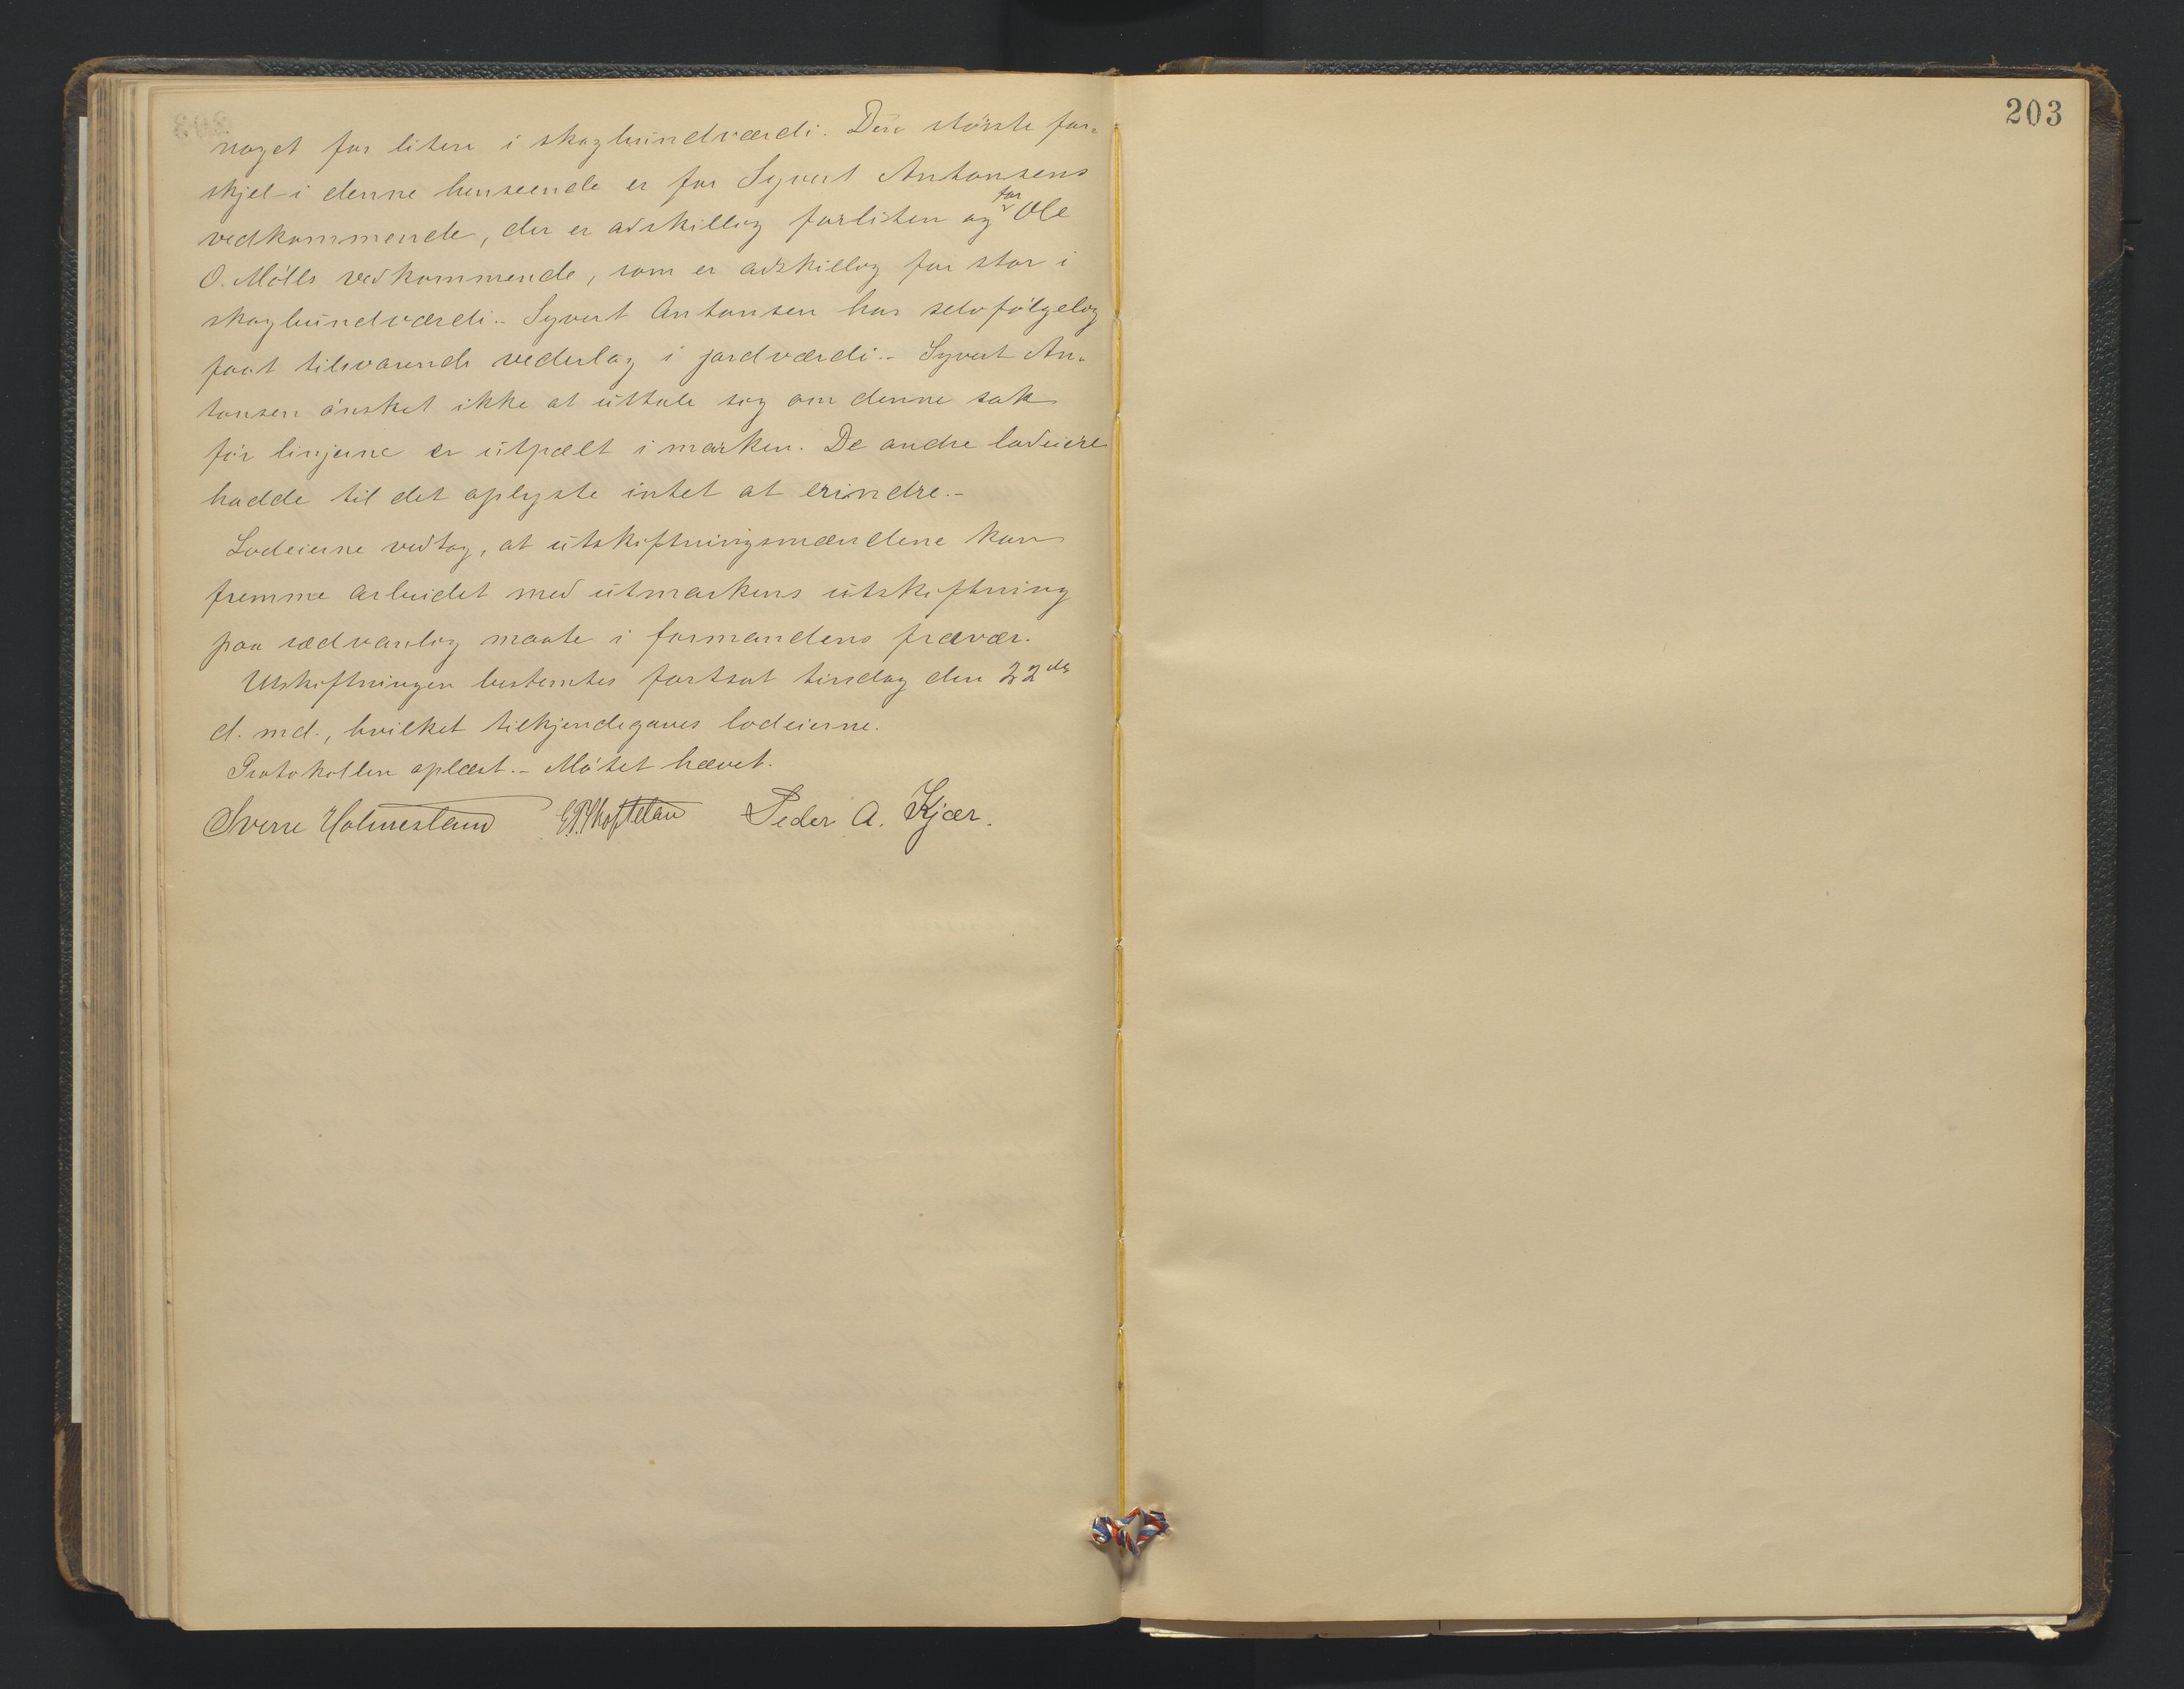 203
noget for liten i skogbundværdi. Den største for-
skjel i denne henseende er for Syvert Antonsens
vedkommende, der er adskillig forliten og for Ole
O. Mölls vedkommende, som er adskillig for stor i
skogbundværdi.- Syvert Antonsen har selvfölgelig
faat tilsvarende vederlag i jordværdi.- Syvert An-
tonsen ønsket ikke at uttale sig om denne sak
før linjerne er utpælt i marken. De andre lodeiere
hadde til det oplyste intet at erindre.-
Lodeierne vedtog, at utskiftningsmændene kan
fremme arbeidet med utmarkens utskiftning
paa sædvanlig maate i formandens fravær.
Utskiftningen bestemtes fortsat tirsdag den 22de
d. md., hvilket tilkjendegaves lodeierne.
Protokollen oplæst.- Møtet hævet.
Sverre Holmesland E.P. Skoftelan Peder A. Kjær.